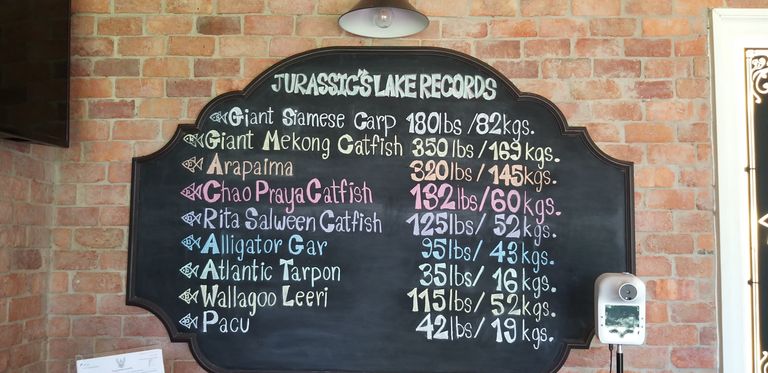 JURASSIC'S LAKE RECORDS
Giant Siamese Carp 180lbs/82kgs.
Giant Mekong Catfish 350lbs/169kgs.
Arapaima 320lbs/145kgs.
Chao Praya Catfish 132lbs/60kgs.
Rita Salween Catfish 125lbs/52kgs.
Alligator Gar 95lbs/43kgs.
Atlantic Tarpon 35lbs/16kgs.
Wallagoo Leeri 115lbs/52kgs.
Pacu 42lbs/19kgs.